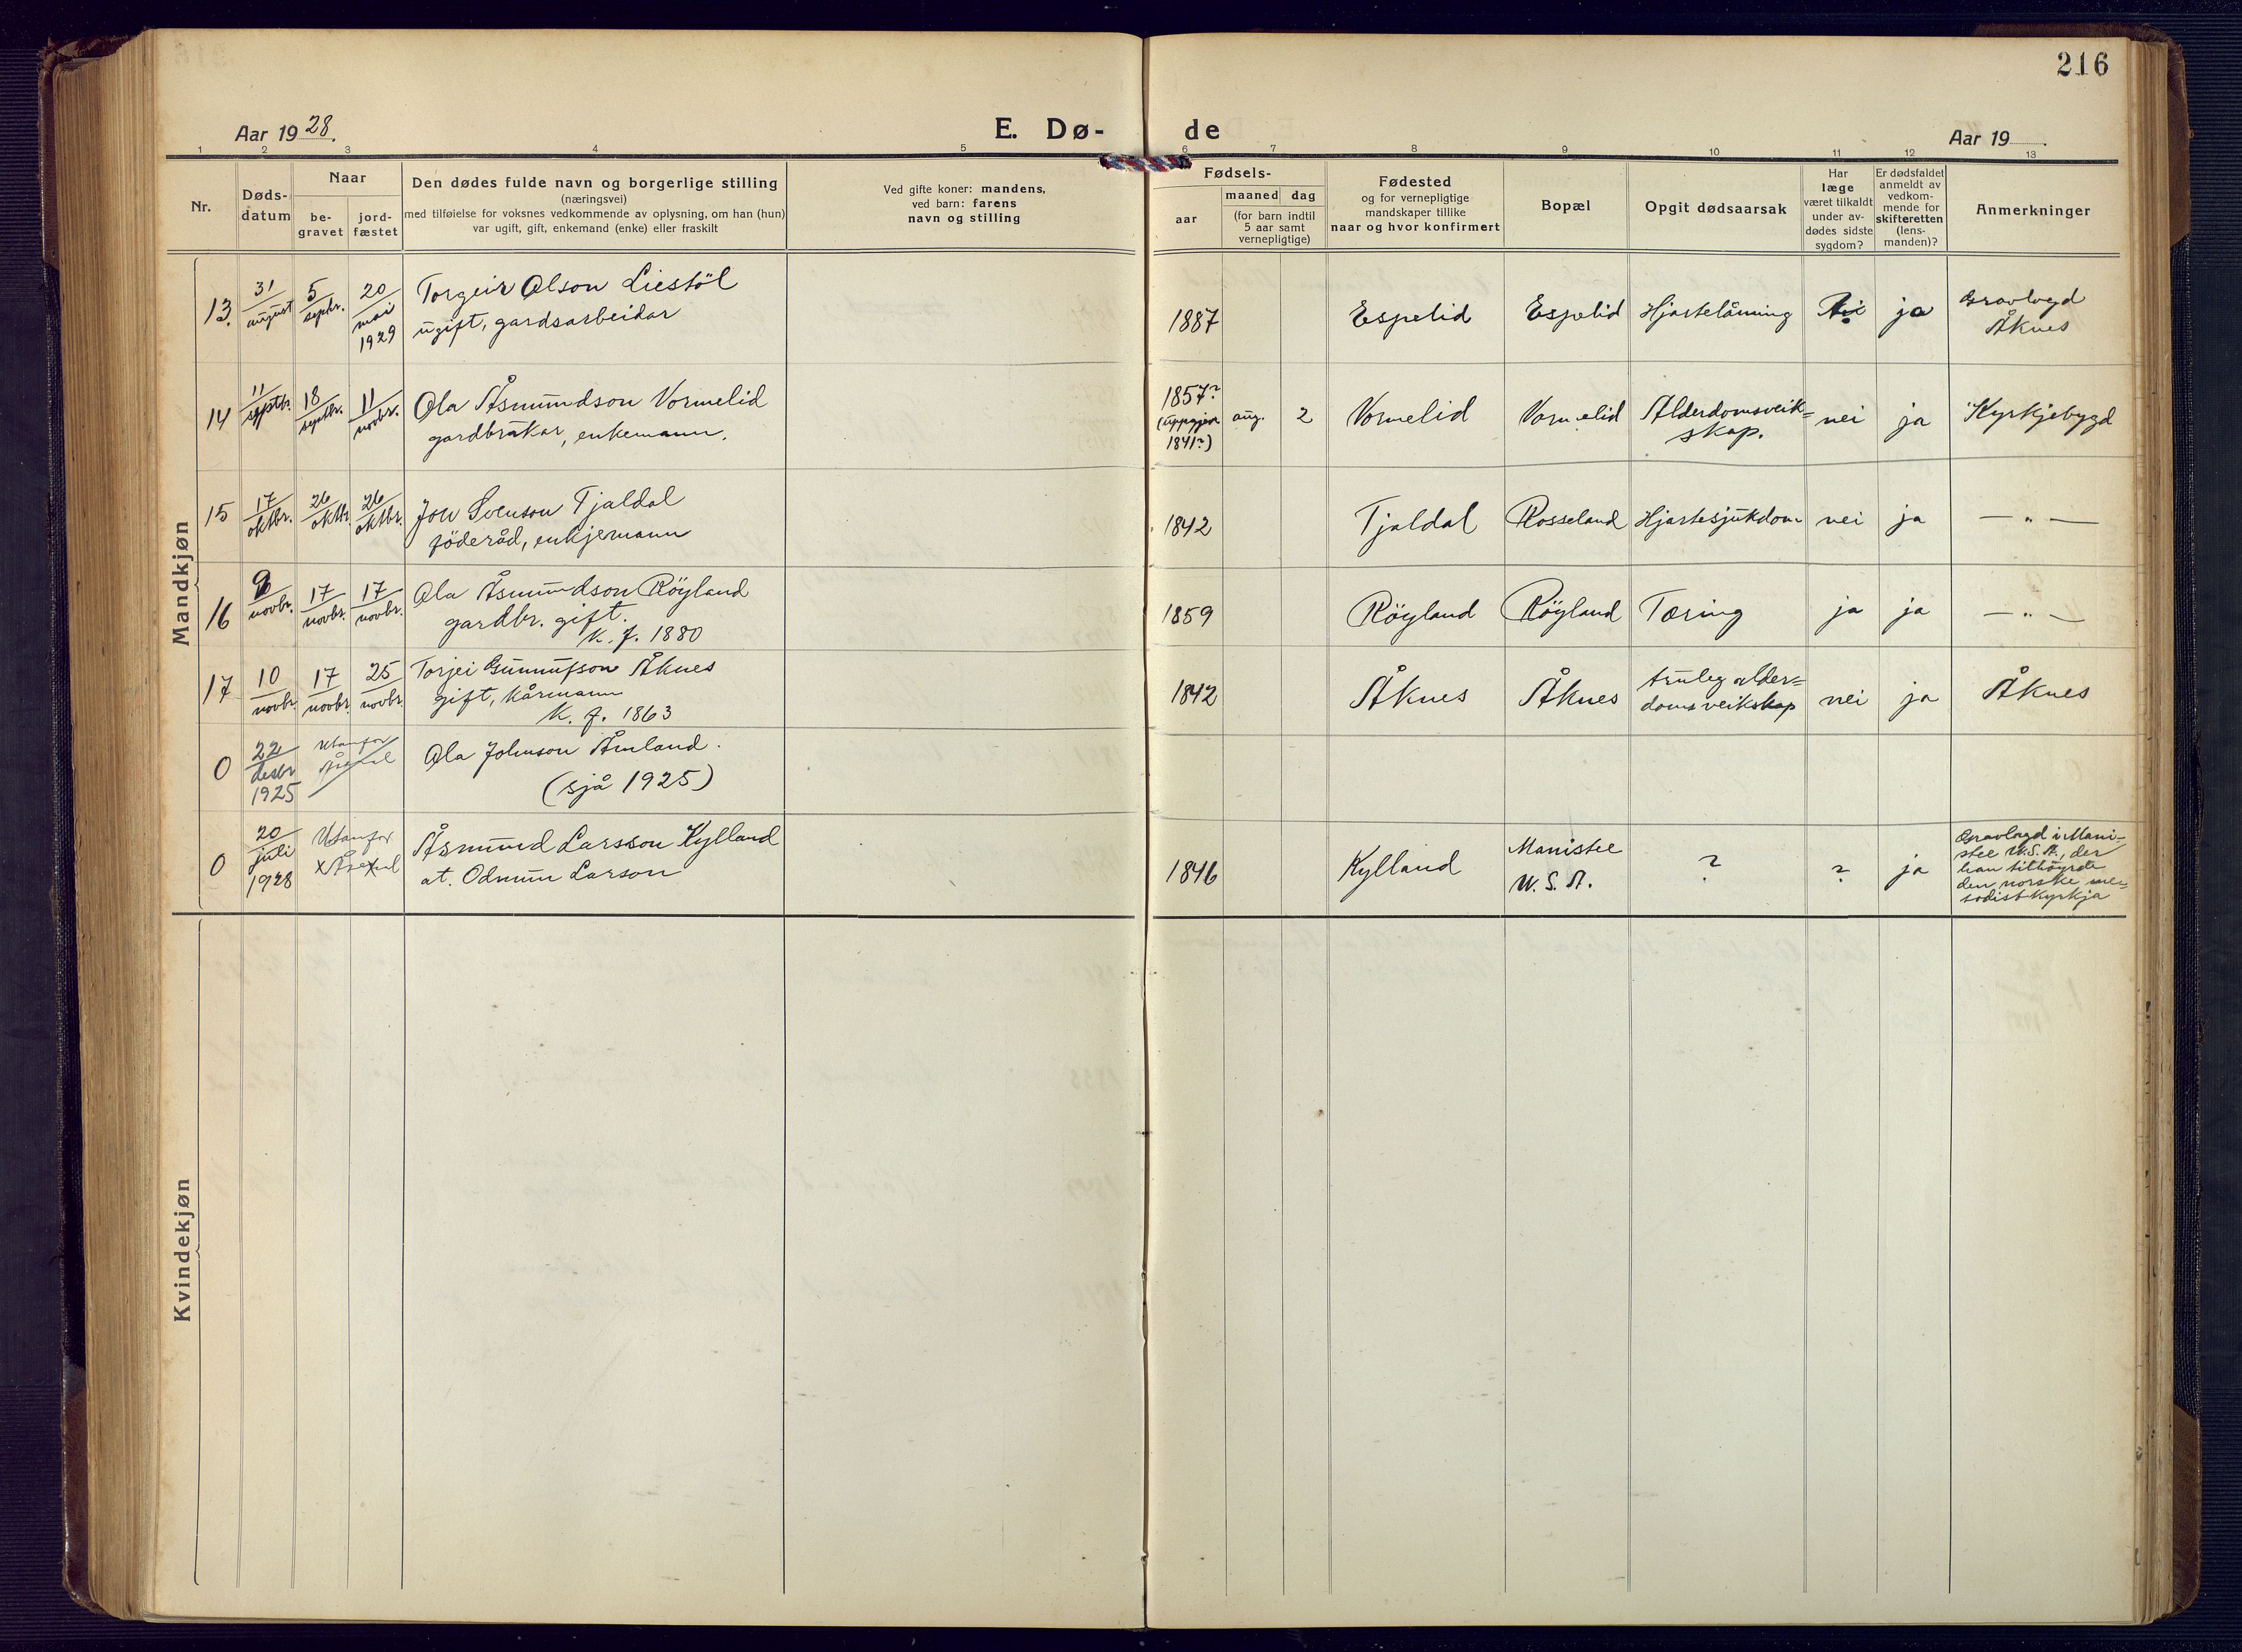 216
Aar 1928.
E. Dø-
de
Aar 19 .
1 2 3 4 5 6 7 8 9 10 11 12 13
Nr.
Døds-
datum
Naar
be-
gravet
jord-
fæstet
Den dødes fulde navn og borgerlige stilling
(næringsvei)
med tilføielse for voksnes vedkommende av oplysning, om han (hun)
var ugift, gift, enkemand (enke) eller fraskilt
Ved gifte koner: mandens,
ved barn: farens
navn og stilling
Fødsels-
aar
maaned dag
(for barn indtil
5 aar samt
vernepligtige)
Fødested
og for vernepligtige
mandskaper tillike
naar og hvor konfirmert
Bopæl
Opgit dødsaarsak
Har
læge
været tilkaldt
under av-
dødes sidste
sygdom?
Er dødsfaldet
anmeldt av
vedkom-
mende for
skifteretten
(lens-
manden)?
Anmerkninger
Mandkjøn
13.
31
august
5
septr.
20
mai
1929
Torgeir Olson Liestöl
ugift, gardsarbeidar
1887
Espelid
Espelid
Hjartelåming
ja
Gravlagd
Åknes
14
11
septbr.
18
septbr.
11
novbr.
Ola Åsmundson Vormelid
gardbrukar, enkemann.
1857?
(uppgjeve
1841?)
aug.
2
Vormelid
Vormelid
Alderdomsveik=
skap.
nei
ja
Kyrkjebygd
15
17
oktbr.
26
oktbr.
26
oktbr.
Jon Svenson Tjaldal
föderåd, enkjemann
1842
Tjaldal
Rosseland
Hjartesjukdom
nei
ja
— " —
16
9
novbr.
17
novbr.
17
novbr.
Ola Åsmundson Röyland
gardbr. gift.
K. f. 1880
1859
Röyland
Röyland
Tæring
ja
ja
— " —
17
10
novbr.
17
novbr.
25
novbr.
Torjei Gunnufson Åknes
gift, kårmann
K. f. 1863
1842
Åknes
Åknes
truleg alder=
domsveikskap
nei
ja
Åknes
0
22
desbr
1925
Utanfor
Åseral
Ola Johnson Åmland.
(sjå 1925)
0
20
juli
1928
Utanfor
x Åseral
Åsmund Larsson Kylland
at. Odmun Larson
1846
Kylland
Manistee
U. S. A.
?
?
ja
Gravlagd i Mani-
stee U.S.A., der
han tilhöyrde
den norske me-
todistkyrkja
Kvindekjøn